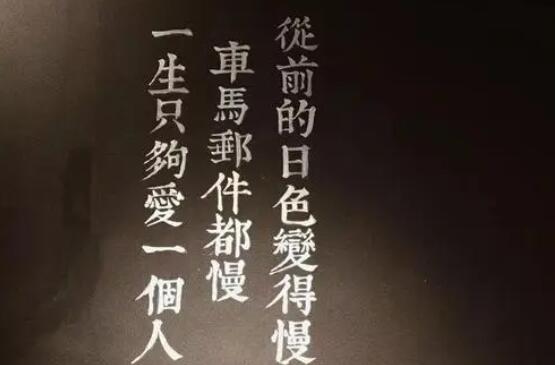 從前的日色變得慢
車馬郵件都慢
一生只夠愛一個人